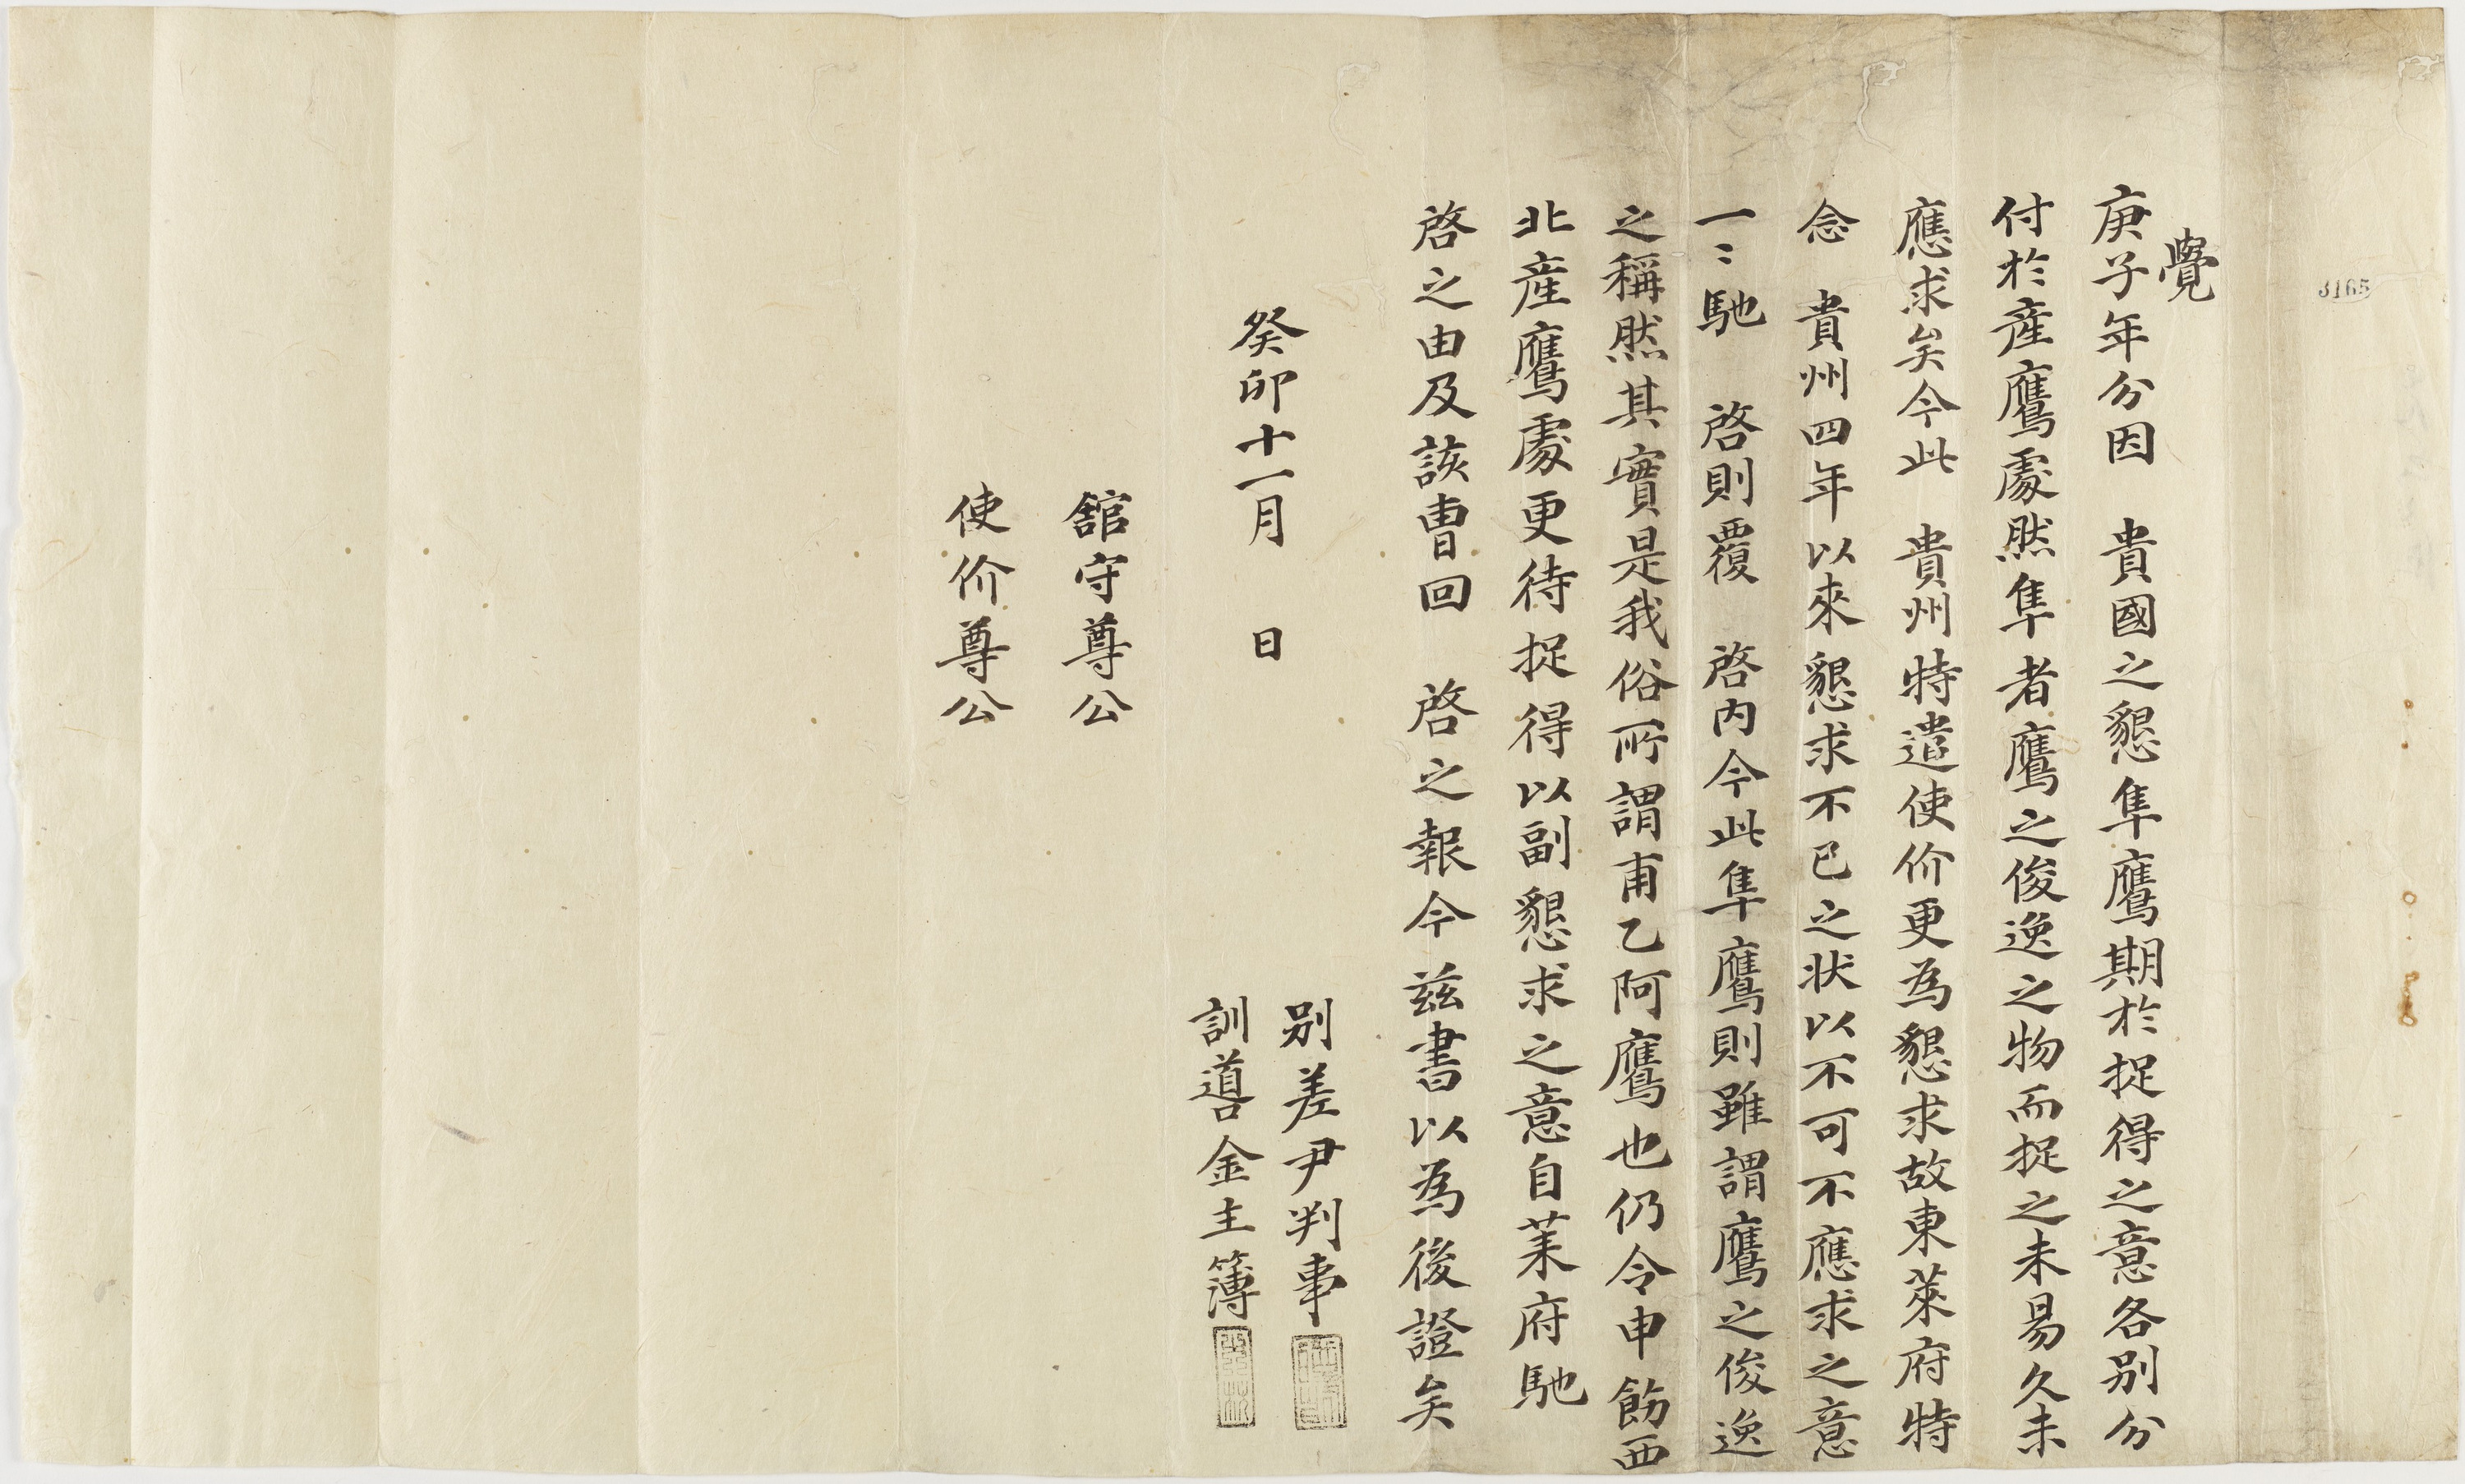 3165
覺
庚子年分因　貴國之懇隼鷹期於捉得之意各別分
付於產鷹處然隼者鷹之俊逸之物而捉之未易久未
應求矣今此　貴州特遣使价更為懇求故東萊府特
念　貴州四年以來懇求不已之状以不可不應求之意
一〻馳　啓則覆　啓內今此隼鷹則雖謂鷹之俊逸
之稱然其實是我俗所謂甫乙阿鷹也仍令申飭西
北產鷹處更待捉得以副懇求之意自萊府馳
啓之由及該曺回　啓之報今茲書以為後證矣
癸卯十一月　日
別差尹判事
訓導金主簿
舘守尊公
使价尊公